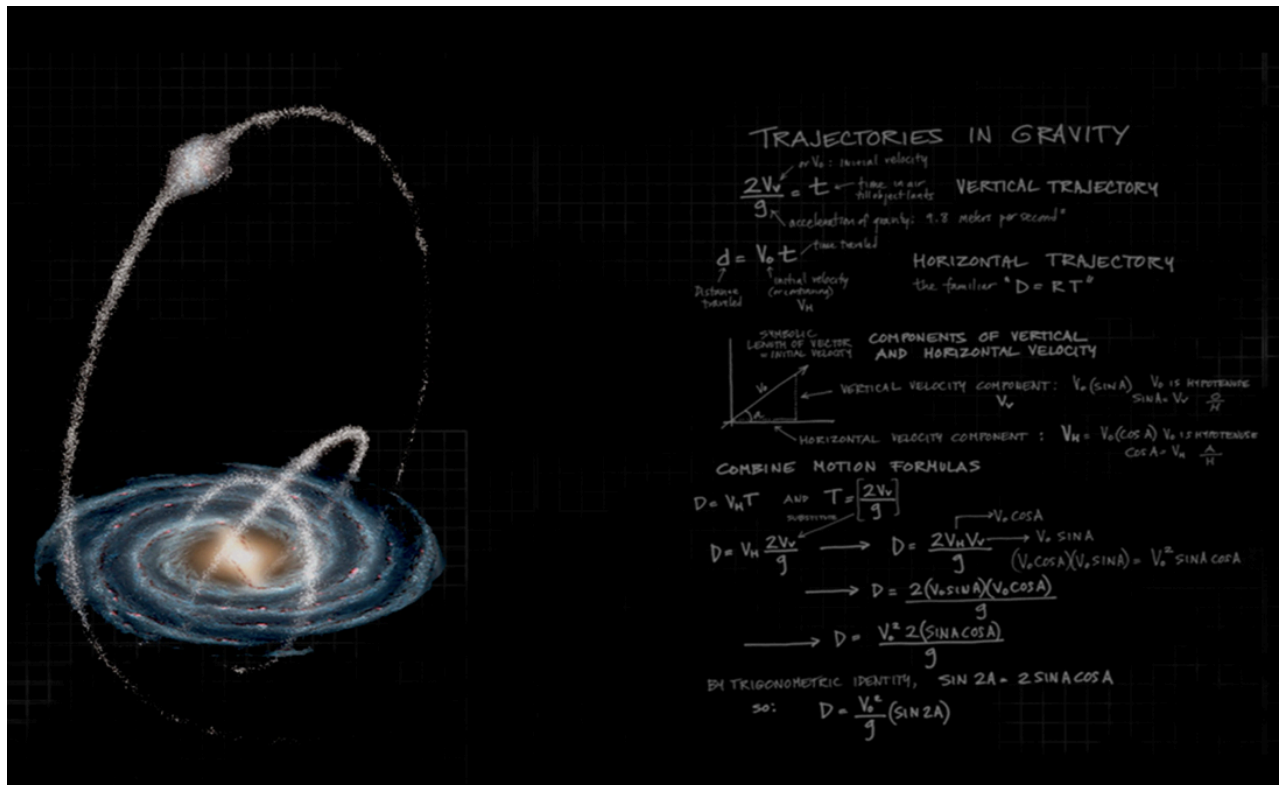 TRAJECTORIES IN GRAVITY
or V₀: initial velocity
2Vᵥ/g = t ← time in air till object lands VERTICAL TRAJECTORY
acceleration of gravity: 9.8 meters per second"
d = V₀ t time traveled
HORIZONTAL TRAJECTORY
the familiar "D = R T"
Distance traveled
initial velocity
V_H
SYMBOLIC
LENGTH OF VECTOR
= INITIAL VELOCITY
COMPONENTS OF VERTICAL
AND HORIZONTAL VELOCITY
V₀
A
VERTICAL VELOCITY COMPONENT: V₀(SIN A) V₀ IS HYPOTENUSE
Vᵥ SIN A = Vᵥ O/H
HORIZONTAL VELOCITY COMPONENT: V_H = V₀(COS A) V₀ IS HYPOTENUSE
COS A = V_H A/H
COMBINE MOTION FORMULAS
D = V_H T AND T = [2Vᵥ/g]
SUBSTITUTE
D = V_H 2Vᵥ/g → D = 2V_H Vᵥ/g
→ V₀ COS A
→ V₀ SIN A
(V₀ COS A)(V₀ SIN A) = V₀² SIN A COS A
→ D = 2(V₀ SIN A)(V₀ COS A)/g
→ D = V₀² 2(SIN A COS A)/g
BY TRIGONOMETRIC IDENTITY, SIN 2A = 2 SIN A COS A
SO: D = V₀²/g (SIN 2A)